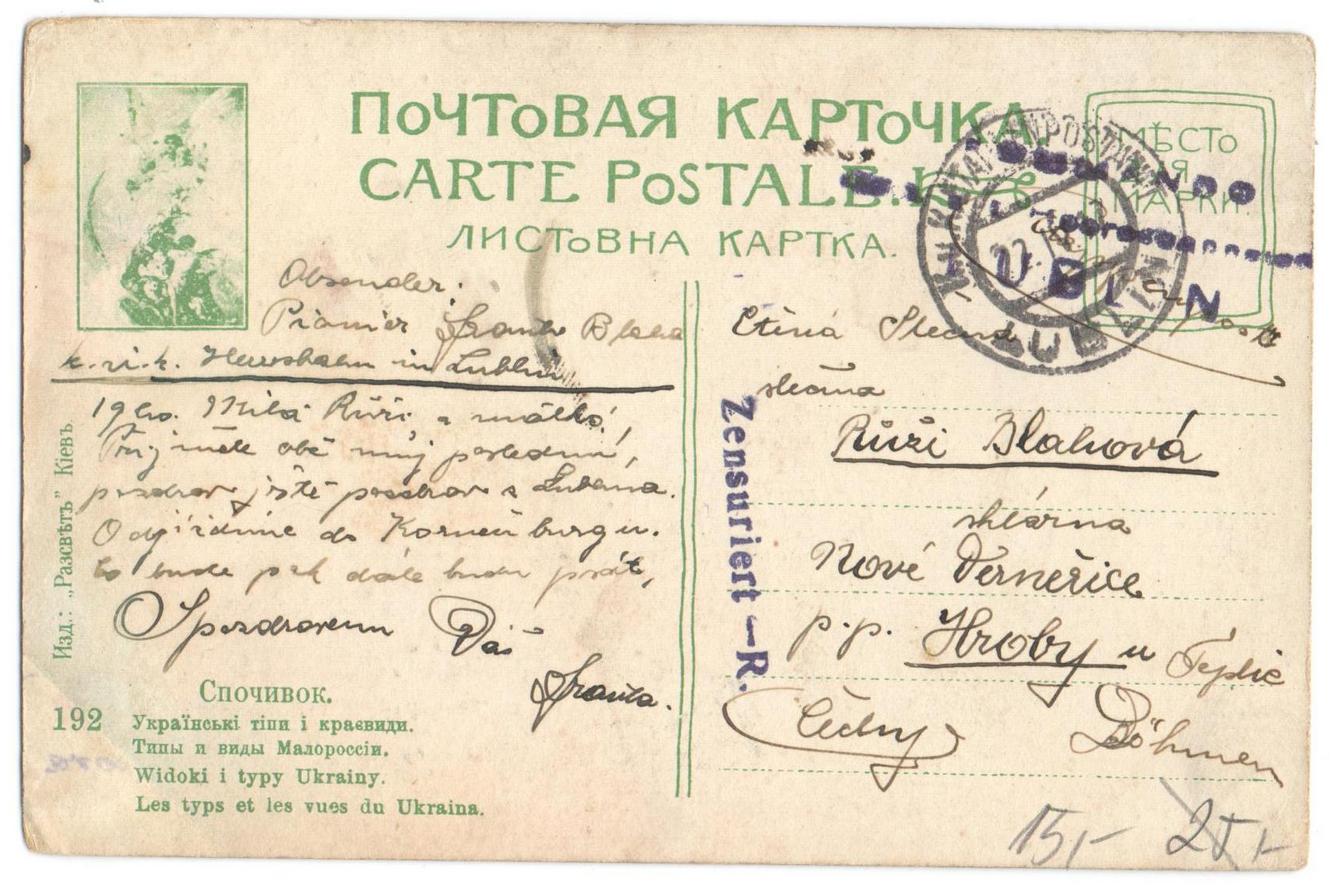 ПОЧТОВАЯ КАРТОЧКА.
CARTE POSTALE.
ЛИСТОВНА КАРТКА.
МѢСТО
ДЛЯ
МАРКИ.
LUBLIN
LUBLIN
Absender:
Pionier Franta Blaha
k. u. k. in Lublin
Milá Růži a matko!
Přijměte obě můj poslední
pozdrav ještě pozdrav z Lublina.
Odjíždíme do Korneuburgu.
co bude pak dále budu psát,
S pozdravem Vás
Franta.
Спочивок.
192
Українські тіпи і краєвиди.
Типы и виды Малороссіи.
Widoki i typy Ukrainy.
Les typs et les vues du Ukraina.
Изд.: „Разсвѣтъ" Кіевъ.
Zensuriert — R.
Ctěná Slečna
slečna
Růži Blahová
sklárna
Nové Verneřice
p. p. Hroby u Teplic
Čechy Böhmen
15,- 25,-